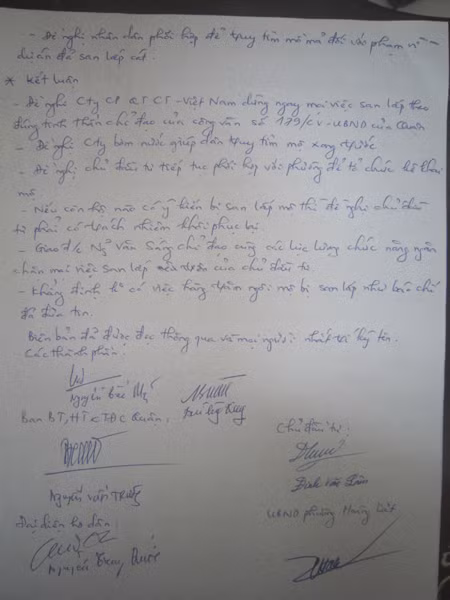 - Đề nghị nhân dân phối hợp để truy tìm mồ mả đối với phạm vi
dự án đã san lấp cát.
* Kết luận
- Đề nghị Cty CP QT CT - Việt Nam dừng ngay mọi việc san lấp theo
đúng tinh thần chỉ đạo của công văn số 179/CV-UBND của Quận
- Đề nghị Cty bơm nước giúp dân truy tìm mộ xong trước
- Đề nghị chủ đầu tư tiếp tục phối hợp với phường để tổ chức kê khai
mộ
- Nếu còn hộ nào có ý kiến bị san lấp mồ thì đề nghị chủ đầu
tư phải có trách nhiệm khôi phục lại.
- Giao đ/c Văn Sáng chỉ đạo cùng các lực lượng chức năng ngăn
chặn mọi việc san lấp của chủ đầu tư
- Khẳng định k có việc hàng trăm ngôi mộ bị san lấp như báo chí
đã đưa tin.
Biên bản đã được đọc thông qua và mọi người nhất trí ký tên.
Các thành phần:
Nguyễn
Ban BT, HT & TĐC Quận.
Chủ đầu tư:
Đinh Văn
Nguyễn Văn
UBND phường Hoàng
Đại diện hộ dân
Nguyễn Trung